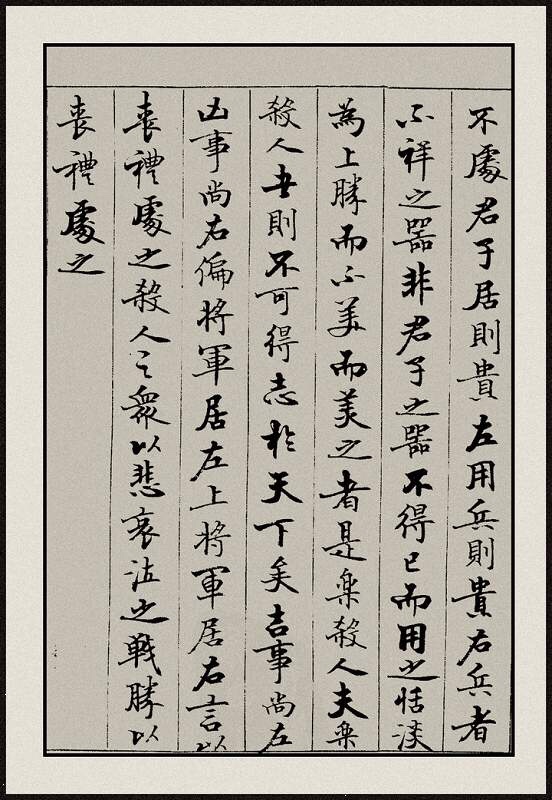 不處君子居則貴左用兵則貴右兵者
不祥之器非君子之器不得已而用之恬淡
為上勝而不美而美之者是樂殺人夫樂
殺人者則不可得志於天下矣吉事尚左
凶事尚右偏將軍居左上將軍居右言以
喪禮處之殺人之衆以悲哀泣之戰勝以
喪禮處之